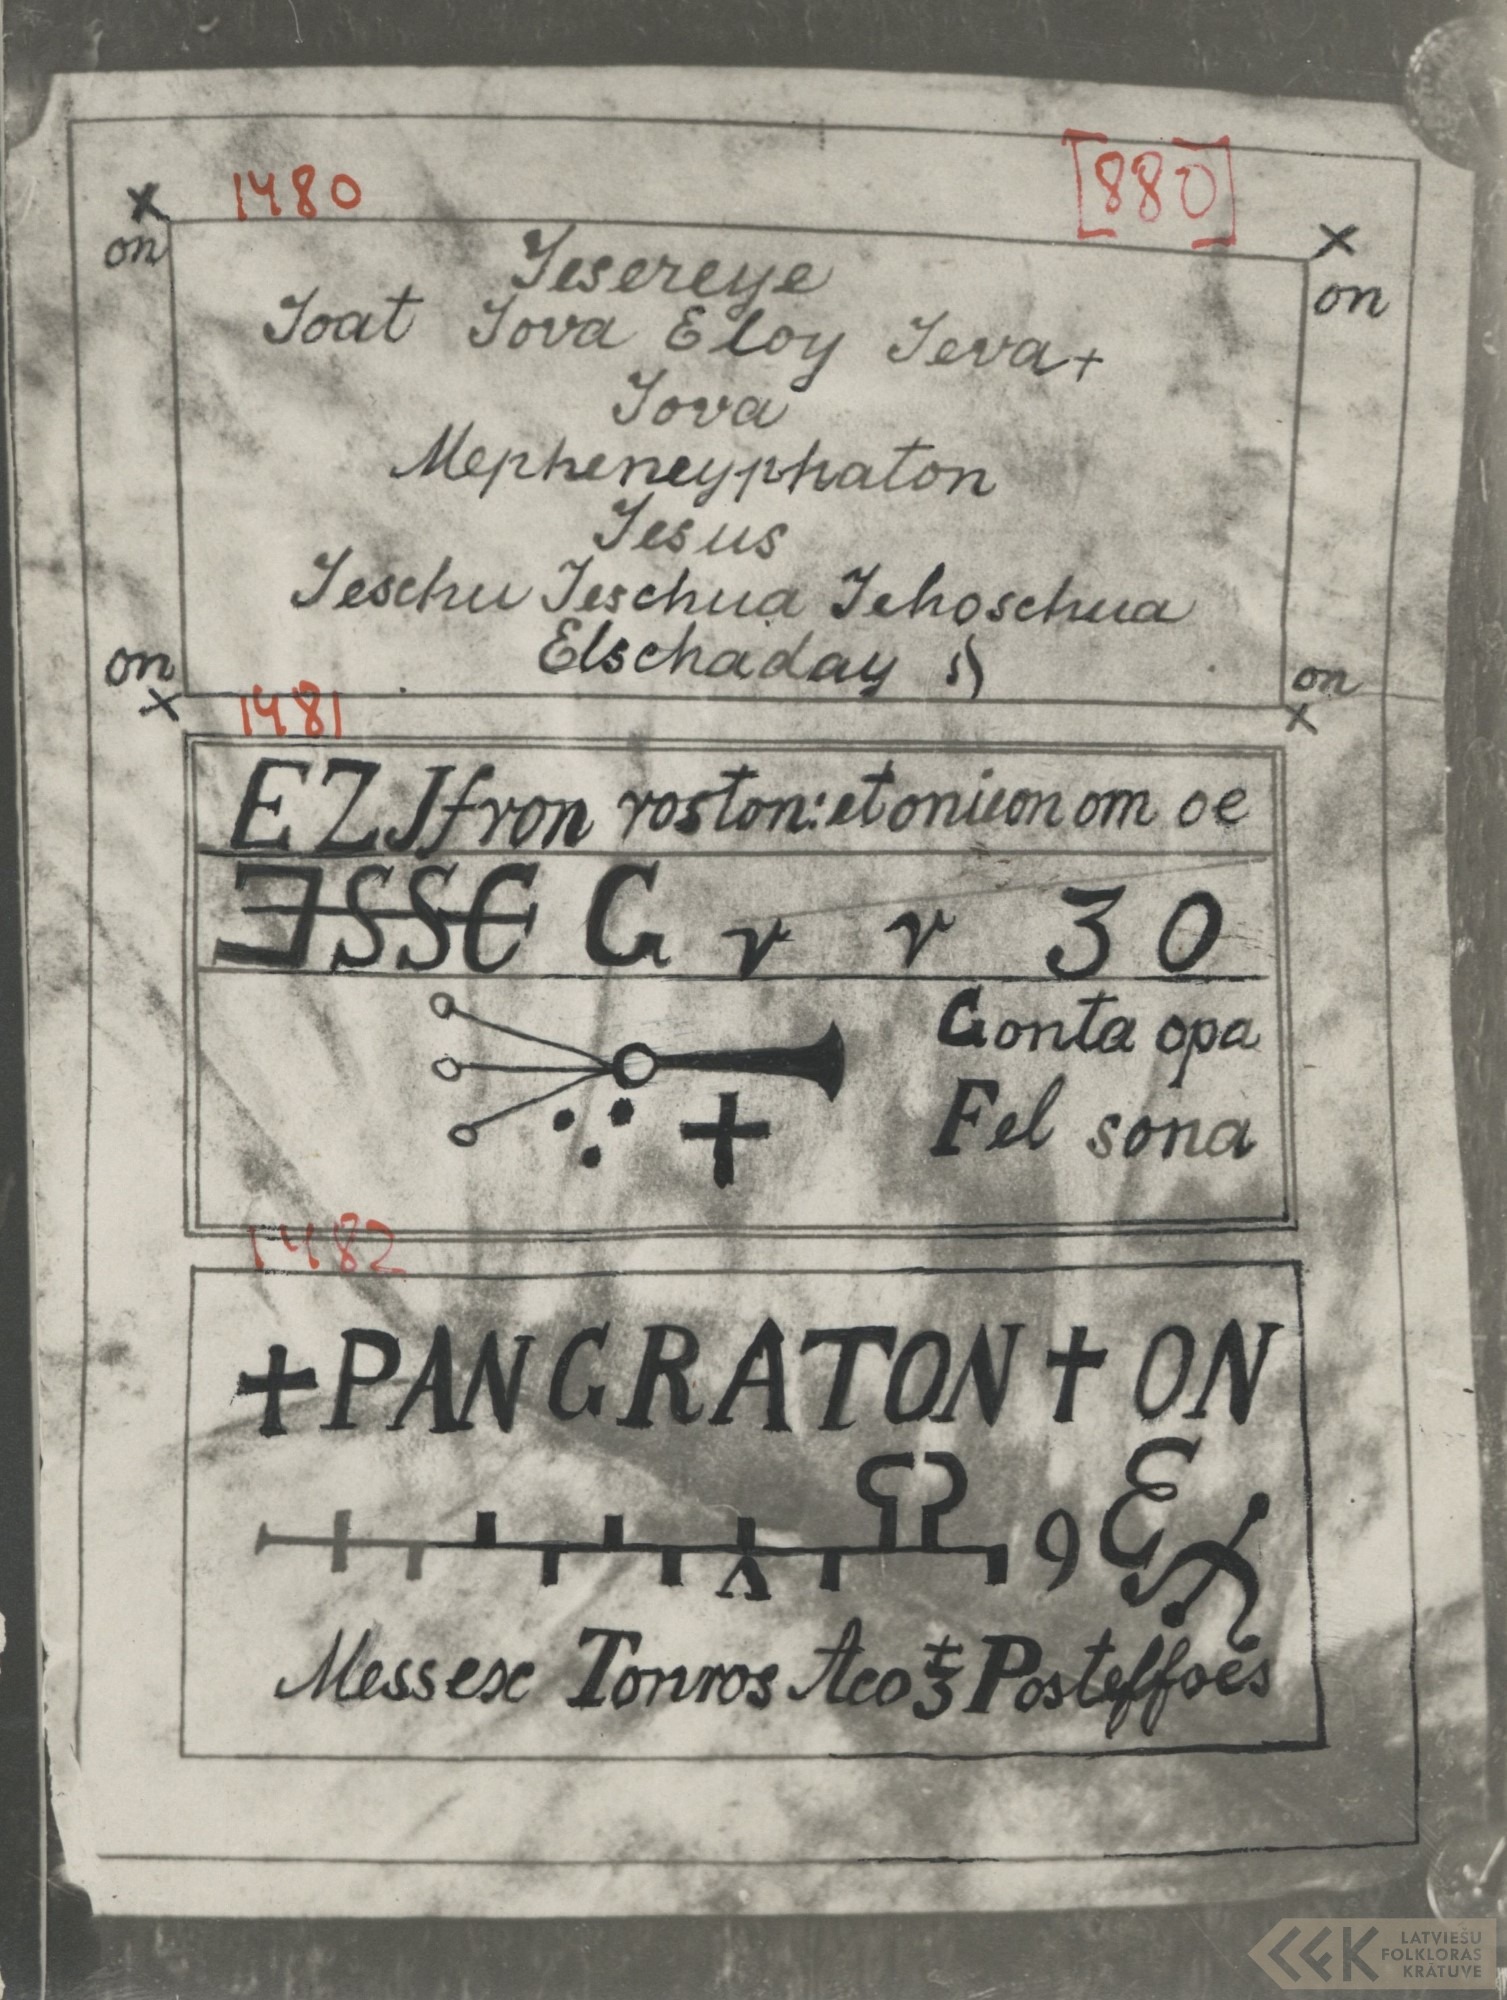 1480 [880]
x x
on on
Jesereye
Joat Jova Eloy Jeva+
Jova
Mepheneyphaton
Jesus
Jeschu Jeschua Jehoschua
Elschaday
on on
x x
1481
EZJfron roston: etonieon om oe
ƎSSE G r r 3 0
Gonta opa
Fel sona
1482
+PANGRATON + ON
9 E
Messex Tonros Aco Posteffoes
LATVIEŠU
FOLKLORAS
KRĀTUVE